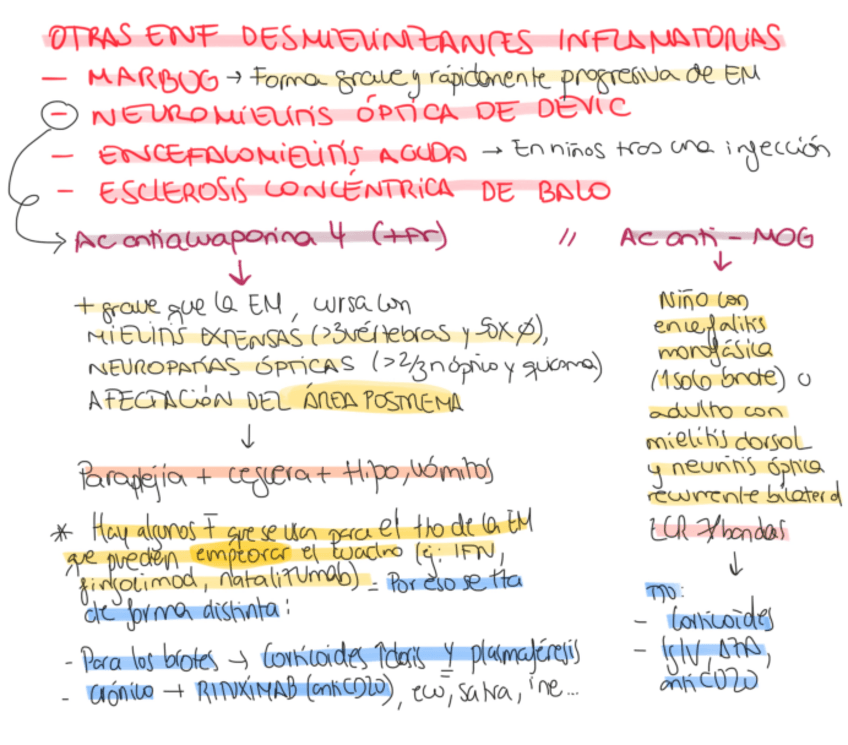 OTRAS ENF DESMIELINIZANTES INFLAMATORIAS
- MARBUG → Forma grave y rápidamente progresiva de EM
- NEUROMIELITIS ÓPTICA DE DEVIC
- ENCEFALOMIELITIS AGUDA → En niños tras una infección
- ESCLEROSIS CONCÉNTRICA DE BALO
Ac antiacuaporina 4 (+Fr) // Ac anti-MOG
↓
+ grave que la EM, cursa con
MIELITIS EXTENSAS (>3 vértebras y 50% Ø),
NEUROPATÍAS ÓPTICAS (>2/3 n óptico y quiasma)
AFECTACIÓN DEL ÁREA POSTREMA
↓
Paraplejia + ceguera + Hipo, vómitos
* Hay algunos F que se usan para el tto de la EM
que pueden empeorar el cuadro (ej: IFN,
fingolimod, natalizumab) = Por eso se tta
de forma distinta:
- Para los brotes → Corticoides ↑dosis y plasmaféresis
- Crónico → RITUXIMAB (antiCD20), ecu, satra, ine...
↓
Niño con
encefalitis
monofásica
(1 solo brote) o
adulto con
mielitis dorsal
y neuritis óptica
recurrente bilateral
LCR bandas
↓
TTO:
- Corticoides
- IgIV, AZA,
antiCD20